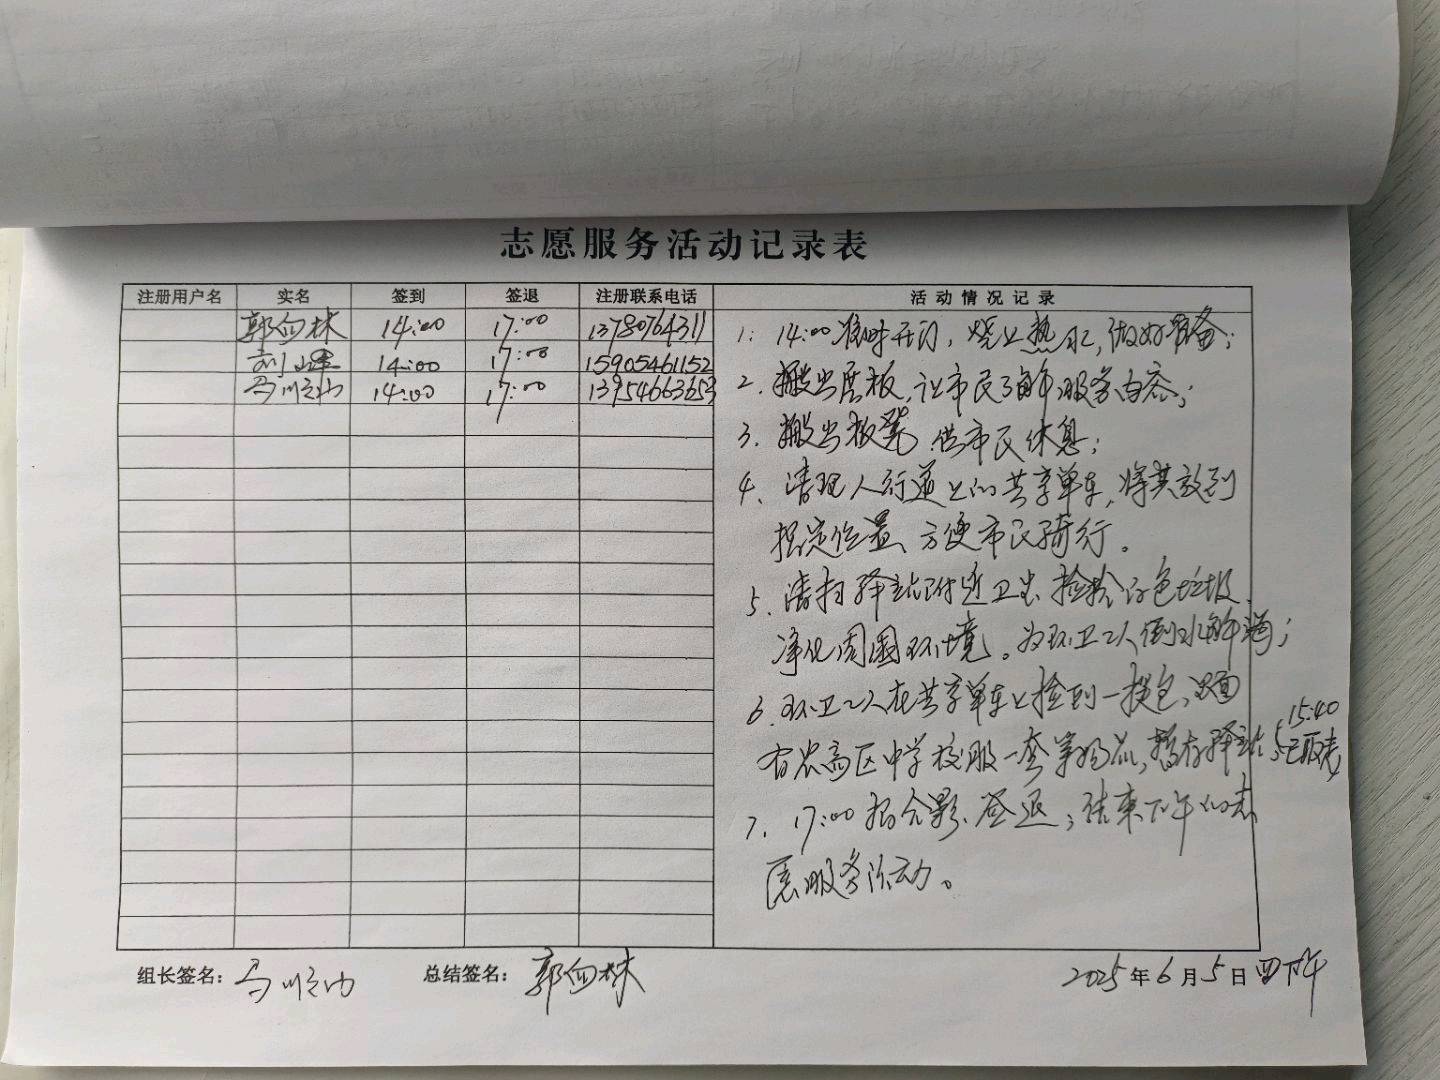 志愿服务活动记录表
注册用户名 实名 签到 签退 注册联系电话 活动情况记录
郭向林 14:00 17:00 13780764311
刘 14:00 17:00 15905461152
马顺 14:00 17:00 13954663653
1. 14:00准时开门，烧上热水，做好准备；
2. 搬出展板，让市民了解服务内容；
3. 搬出板凳，供市民休息；
4. 清理人行道上的共享单车，将其放到
指定位置、方便市民骑行。
5. 清扫驿站附近卫生，捡拾白色垃圾、
净化周围环境。为环卫工人倒水解渴；
6. 环卫工人在共享单车上捡到一挎包，里面
有农高区中学校服一套等物品，暂存驿站；15:40已取走
7. 17:00拍合影、签退；结束下午的志
愿服务活动。
组长签名：马顺 总结签名：郭向林 2025年6月5日四下午